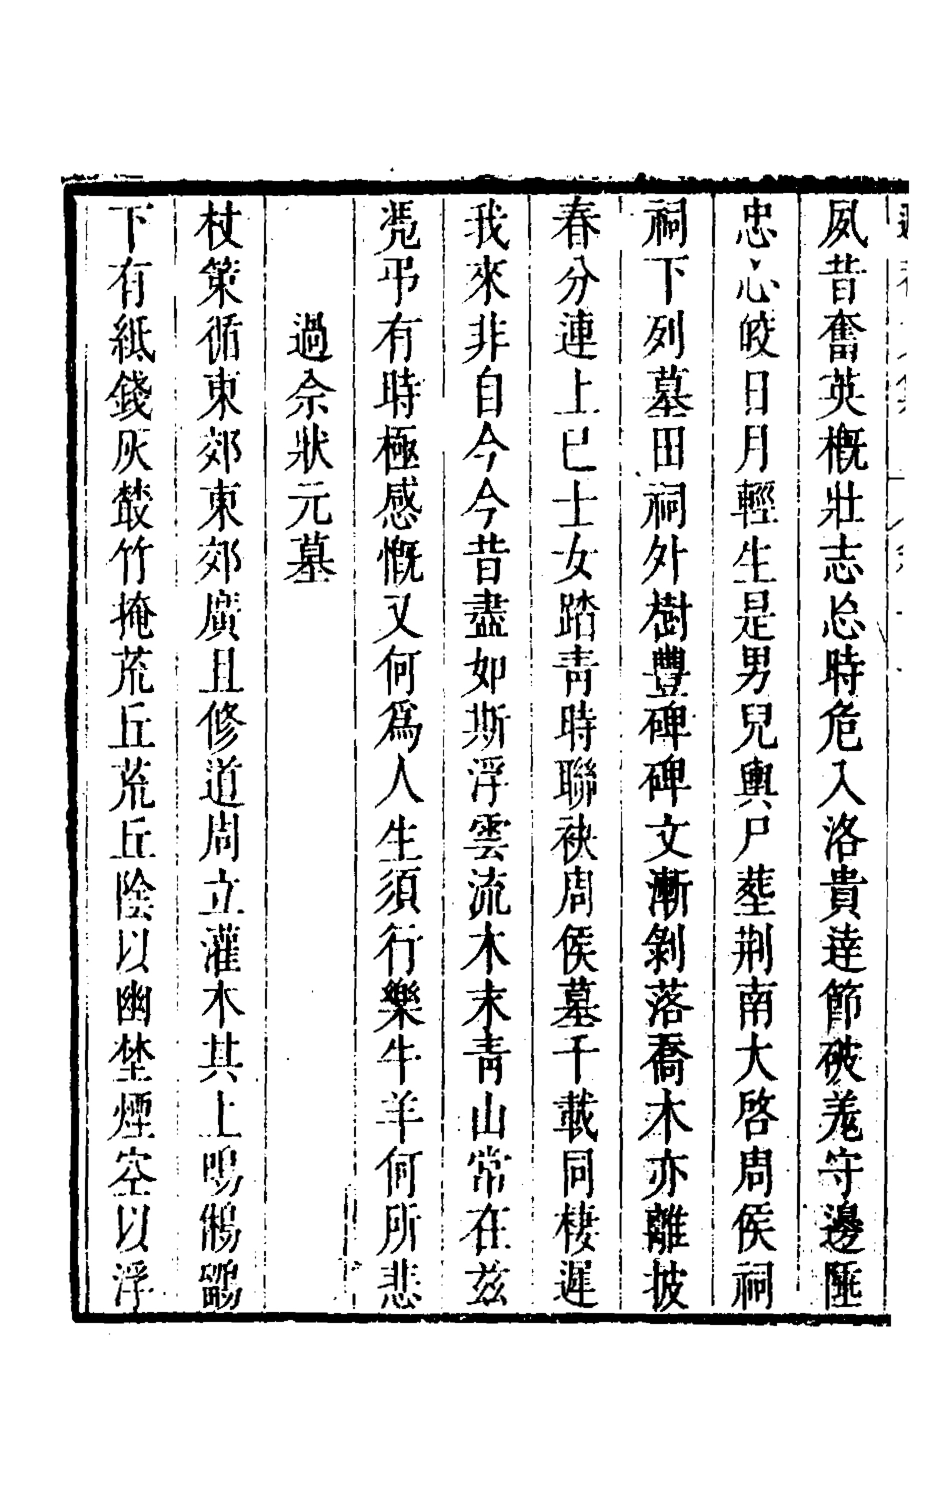 夙昔奮英概壯志忘時危入洛貴達節破羗守邊陲
忠心皎日月輕生是男兒輿尸塟荆南大啓周侯祠
祠下列墓田祠外樹豐碑碑文漸剝落喬木亦離披
春分連上巳士女踏青時聯袂周侯墓千載同棲遲
我來非自今今昔盡如斯浮雲流木末青山常在兹
凴弔有時極感慨又何爲人生須行樂牛羊何所悲
過佘狀元墓
杖策循東郊東郊廣且修道周立灌木其上鳴鵂鶹
下有紙錢灰叢竹掩荒丘荒丘陰以幽埜煙空以浮